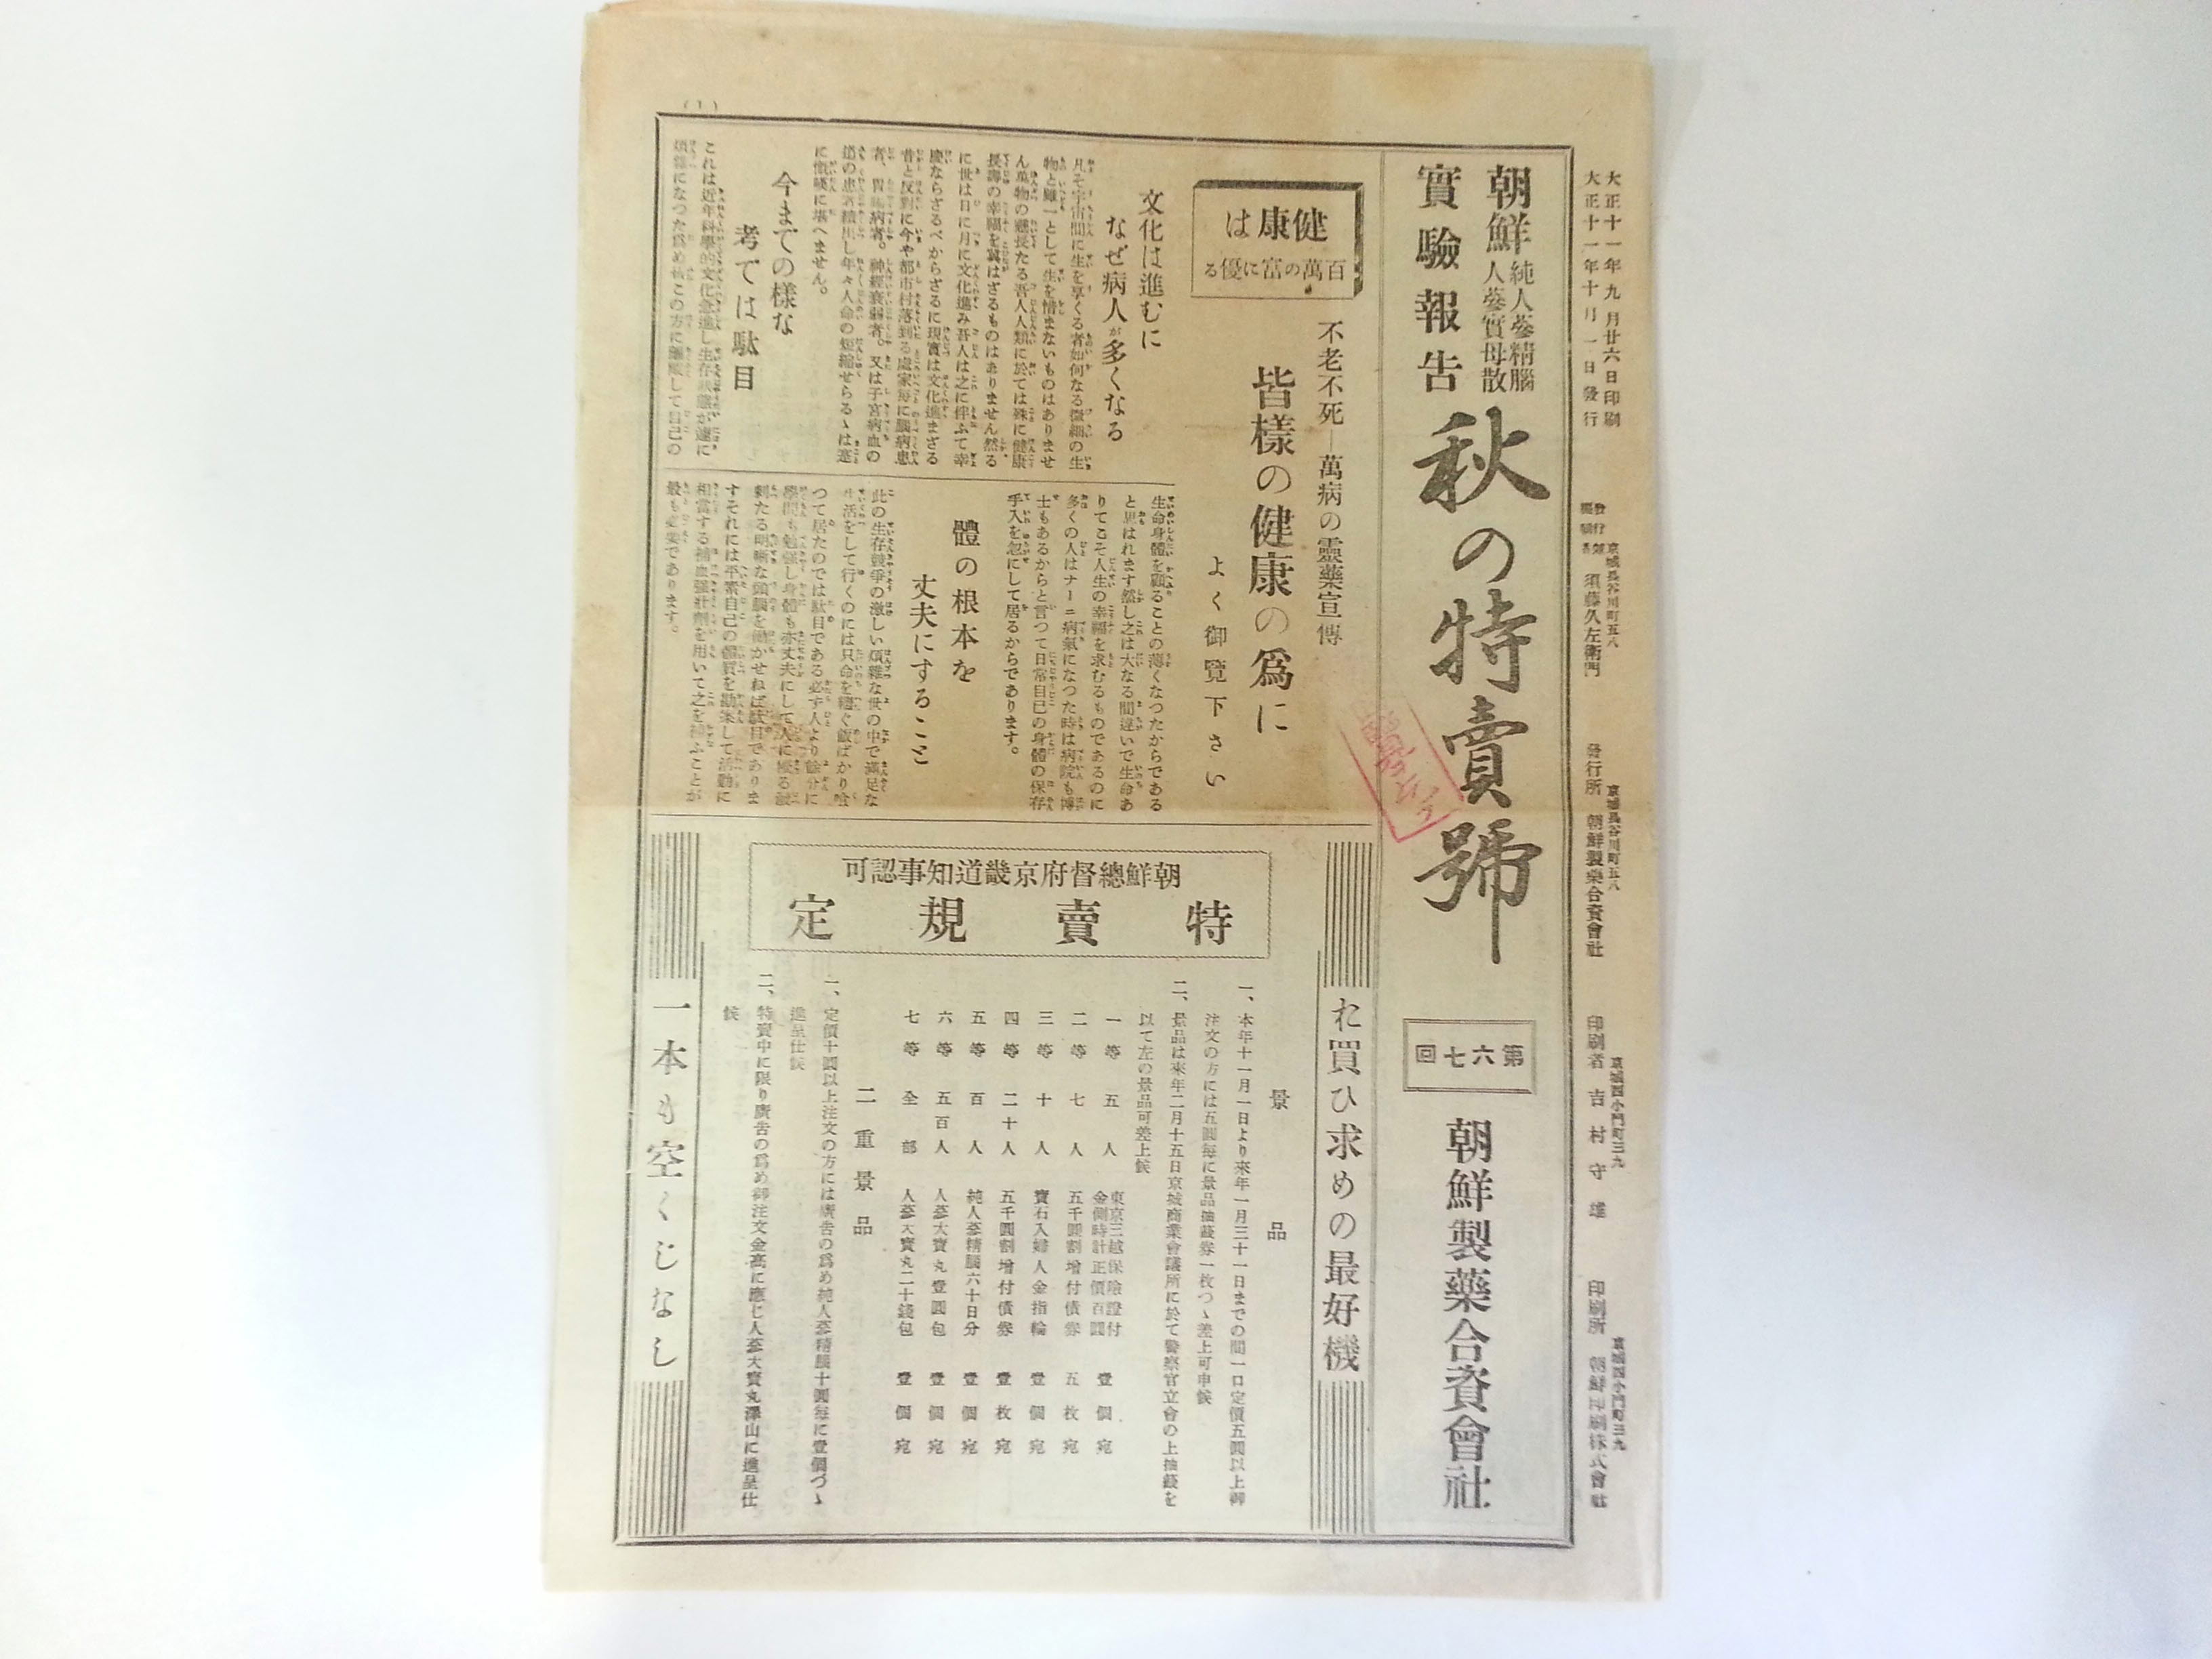 大正十一年九月廿六日印刷
大正十一年十月一日發行
京城長谷川町五八
須藤久左衞門
京城長谷川町五八
發行所 朝鮮製藥合資會社
京城西小門町三九
印刷者 吉村守雄
京城西小門町三九
印刷所 朝鮮印刷株式會社
朝鮮
純人蔘精腦
人蔘實母散
實驗報告
秋の特賣號
第六七回
朝鮮製藥合資會社
(1)
健康は
百萬の富に優る
不老不死―萬病の靈藥宣傳
皆樣の健康の爲に
よく御覽下さい
文化は進むに
なぜ病人が多くなる
凡そ宇宙間に生を享くる者如何なる微細の生
物と雖一として生を惜まないものはありませ
ん萬物の靈長たる吾人人類に於ては殊に健康
長壽の幸福を冀はざるものはありません然る
に世は日に月に文化進み吾人は之に伴ふて幸
慶ならざるべからざるに現實は文化進まざる
昔と反對に今や都市村落到る處家每に腦病患
者、胃腸病者。神經衰弱者。又は子宮病血の
道の患者續出し年々人命の短縮せらるゝは蹇
に慨嘆に堪へません。
今までの樣な
考ては駄目
これは近年科學的文化急進し生存狀態が遽に
煩雜になつた爲め
この方に
して自己の
生命身體を顧ることの薄くなつたからである
と思はれます然し之は大なる間違いで生命あ
りてこそ人生の幸福を求むるものであるのに
多くの人はナーニ病氣になつた時は病院も博
士もあるからと言つて日常自己の身體の保存
手入を忽にして居るからであります。
體の根本を
丈夫にすること
此の生存競爭の激しい煩雜な世の中で滿足な
生活をして行くのには只命を繼ぐ飯ばかり喰
つて居たのでは駄目である必ず人より餘分に
學問も勉强し身體も亦丈夫にして人に優る潑
剌たる明晰な頭腦を働かせねば駄目でありま
すそれには平素自己の體質を勘案して活動に
相當する補血强壯劑を用いて之を補ふことが
最も必要であります。
お買ひ求めの最好機
朝鮮總督府京畿道知事認可
特賣規定
景品
一、本年十一月一日より來年一月三十一日までの間一口定價五圓以上御
注文の方には五圓每に景品抽籤券一枚つゝ差上可申候
二、景品は來年二月十五日京城商業會議所に於て警察官立會の上抽籤を
以て左の景品可差上候
一等 五人 東京三越保險證付金側時計正價百圓 壹個宛
二等 七人 五千圓割增付債券 五枚宛
三等 十人 寶石入婦人金指輪 壹個宛
四等 二十人 五千圓割增付債券 壹枚宛
五等 百人 純人蔘精腦六十日分 壹個宛
六等 五百人 人蔘大寶丸壹圓包 壹個宛
七等 全部 人蔘大寶丸二十錢包 壹個宛
二重景品
一、定價十圓以上注文の方には廣告の爲め純人蔘精腦十圓每に壹個づゝ
進呈仕候
二、特賣中に限り廣告の爲め御注文金高に應じ人蔘大寶丸澤山に進呈仕
候
一本も空くじなし